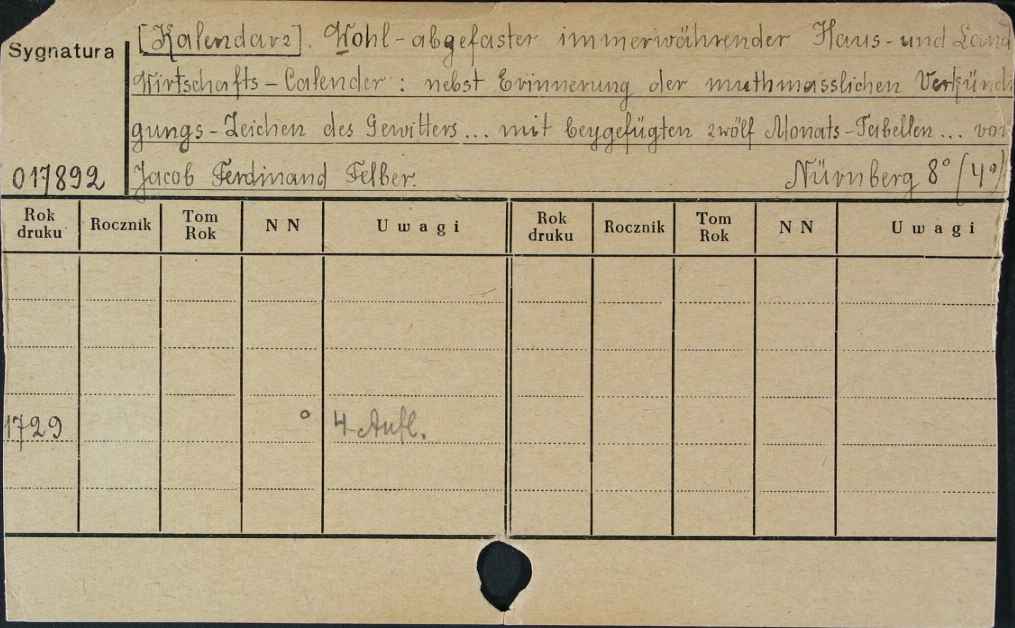 Sygnatura
[Kalendarz]. Wohl-abgefaster immerwährender Haus- und Land
Wirtschafts-Calender : nebst Erinnerung der muthmasslichen Verkündi
gungs-Zeichen des Gewitters... mit beygefügten zwölf Monats-Tabellen... von
017892 Jacob Ferdinand Felber. Nürnberg 8° (4°)
Rok druku Rocznik Tom Rok NN Uwagi Rok druku Rocznik Tom Rok NN Uwagi
1729 ° 4 Aufl.